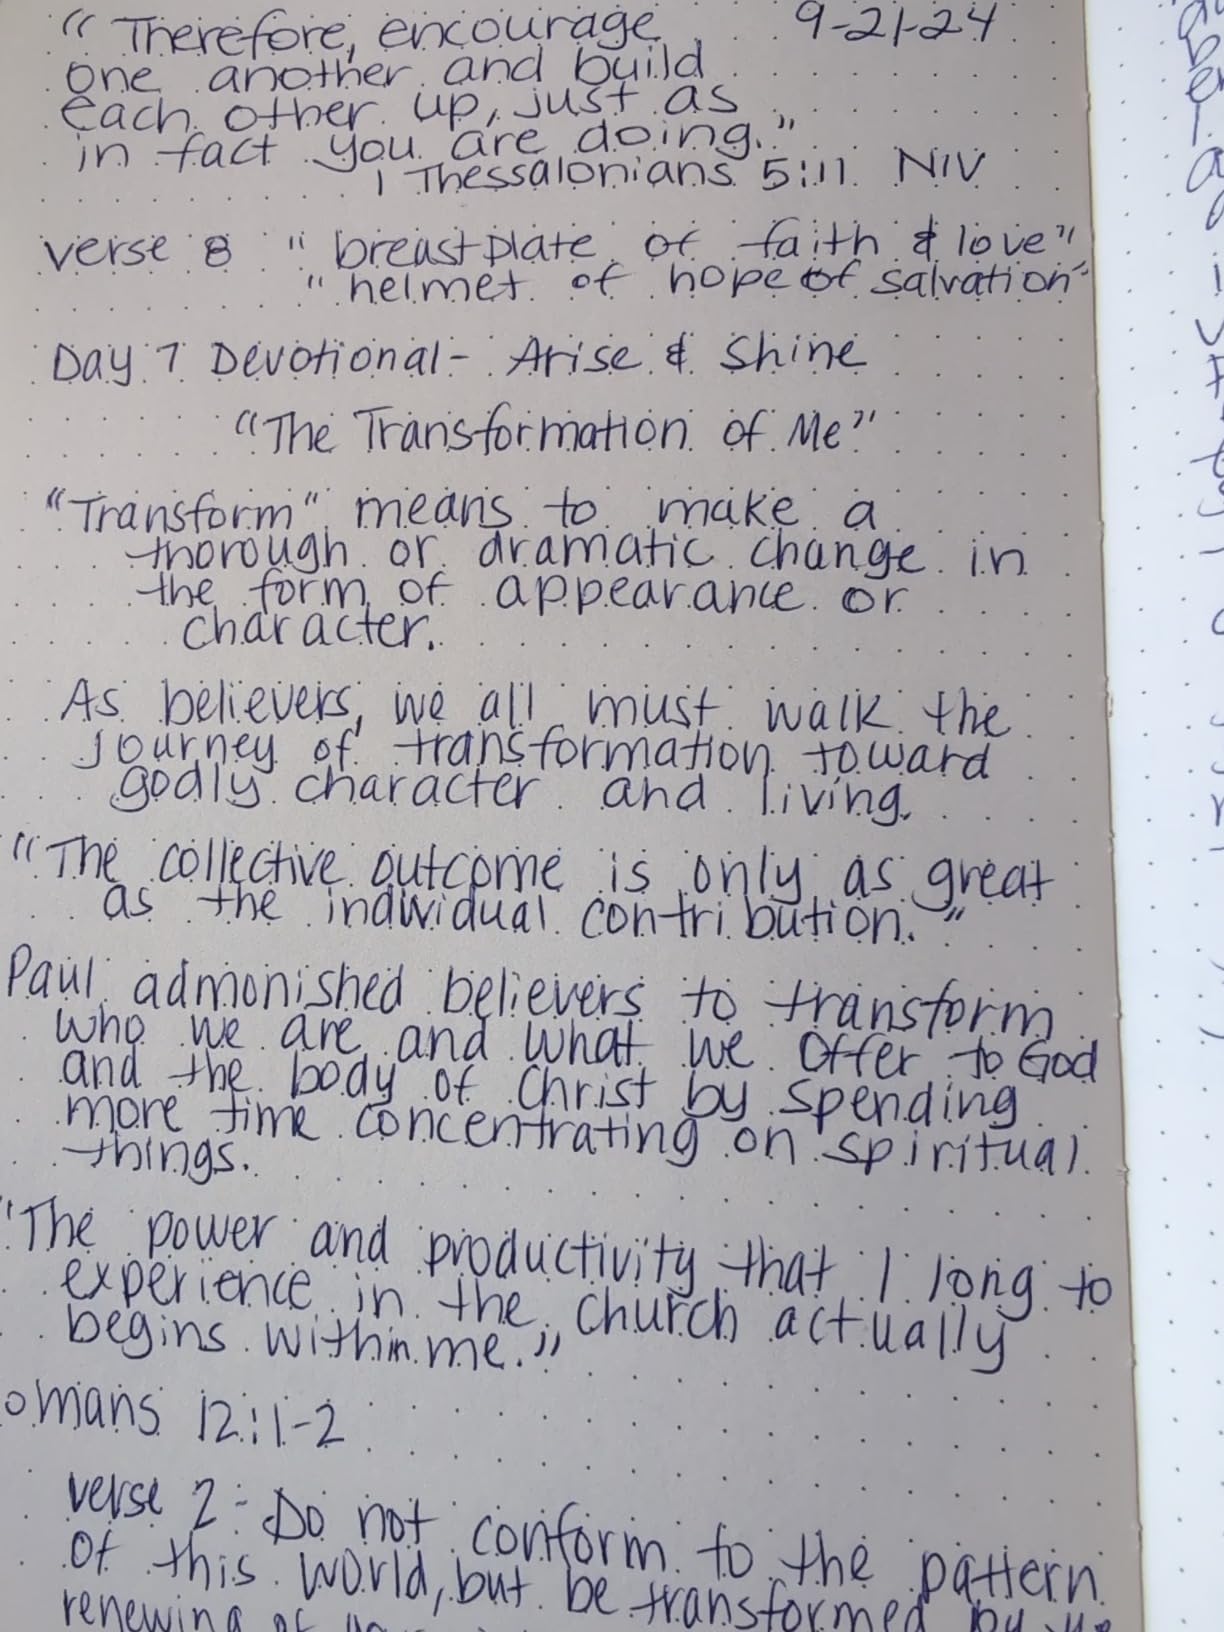 "Therefore, encourage 9-21-24
one another and build
each other up, just as
in fact you are doing."
1 Thessalonians 5:11 NIV
verse 8 "breastplate of faith & love"
"helmet of hope of salvation"
Day 7 Devotional- Arise & Shine
"The Transformation of Me"
"Transform" means to make a
thorough or dramatic change in
the form of appearance or
character.
As believers, we all must walk the
journey of transformation toward
godly character and living.
"The collective outcome is only as great
as the individual contribution."
Paul admonished believers to transform
who we are and what we offer to God
and the body of Christ by spending
more time concentrating on spiritual
things.
"The power and productivity that I long to
experience in the church actually
begins within me."
omans 12:1-2
verse 2- Do not conform to the pattern
of this world, but be transformed by
renewing of